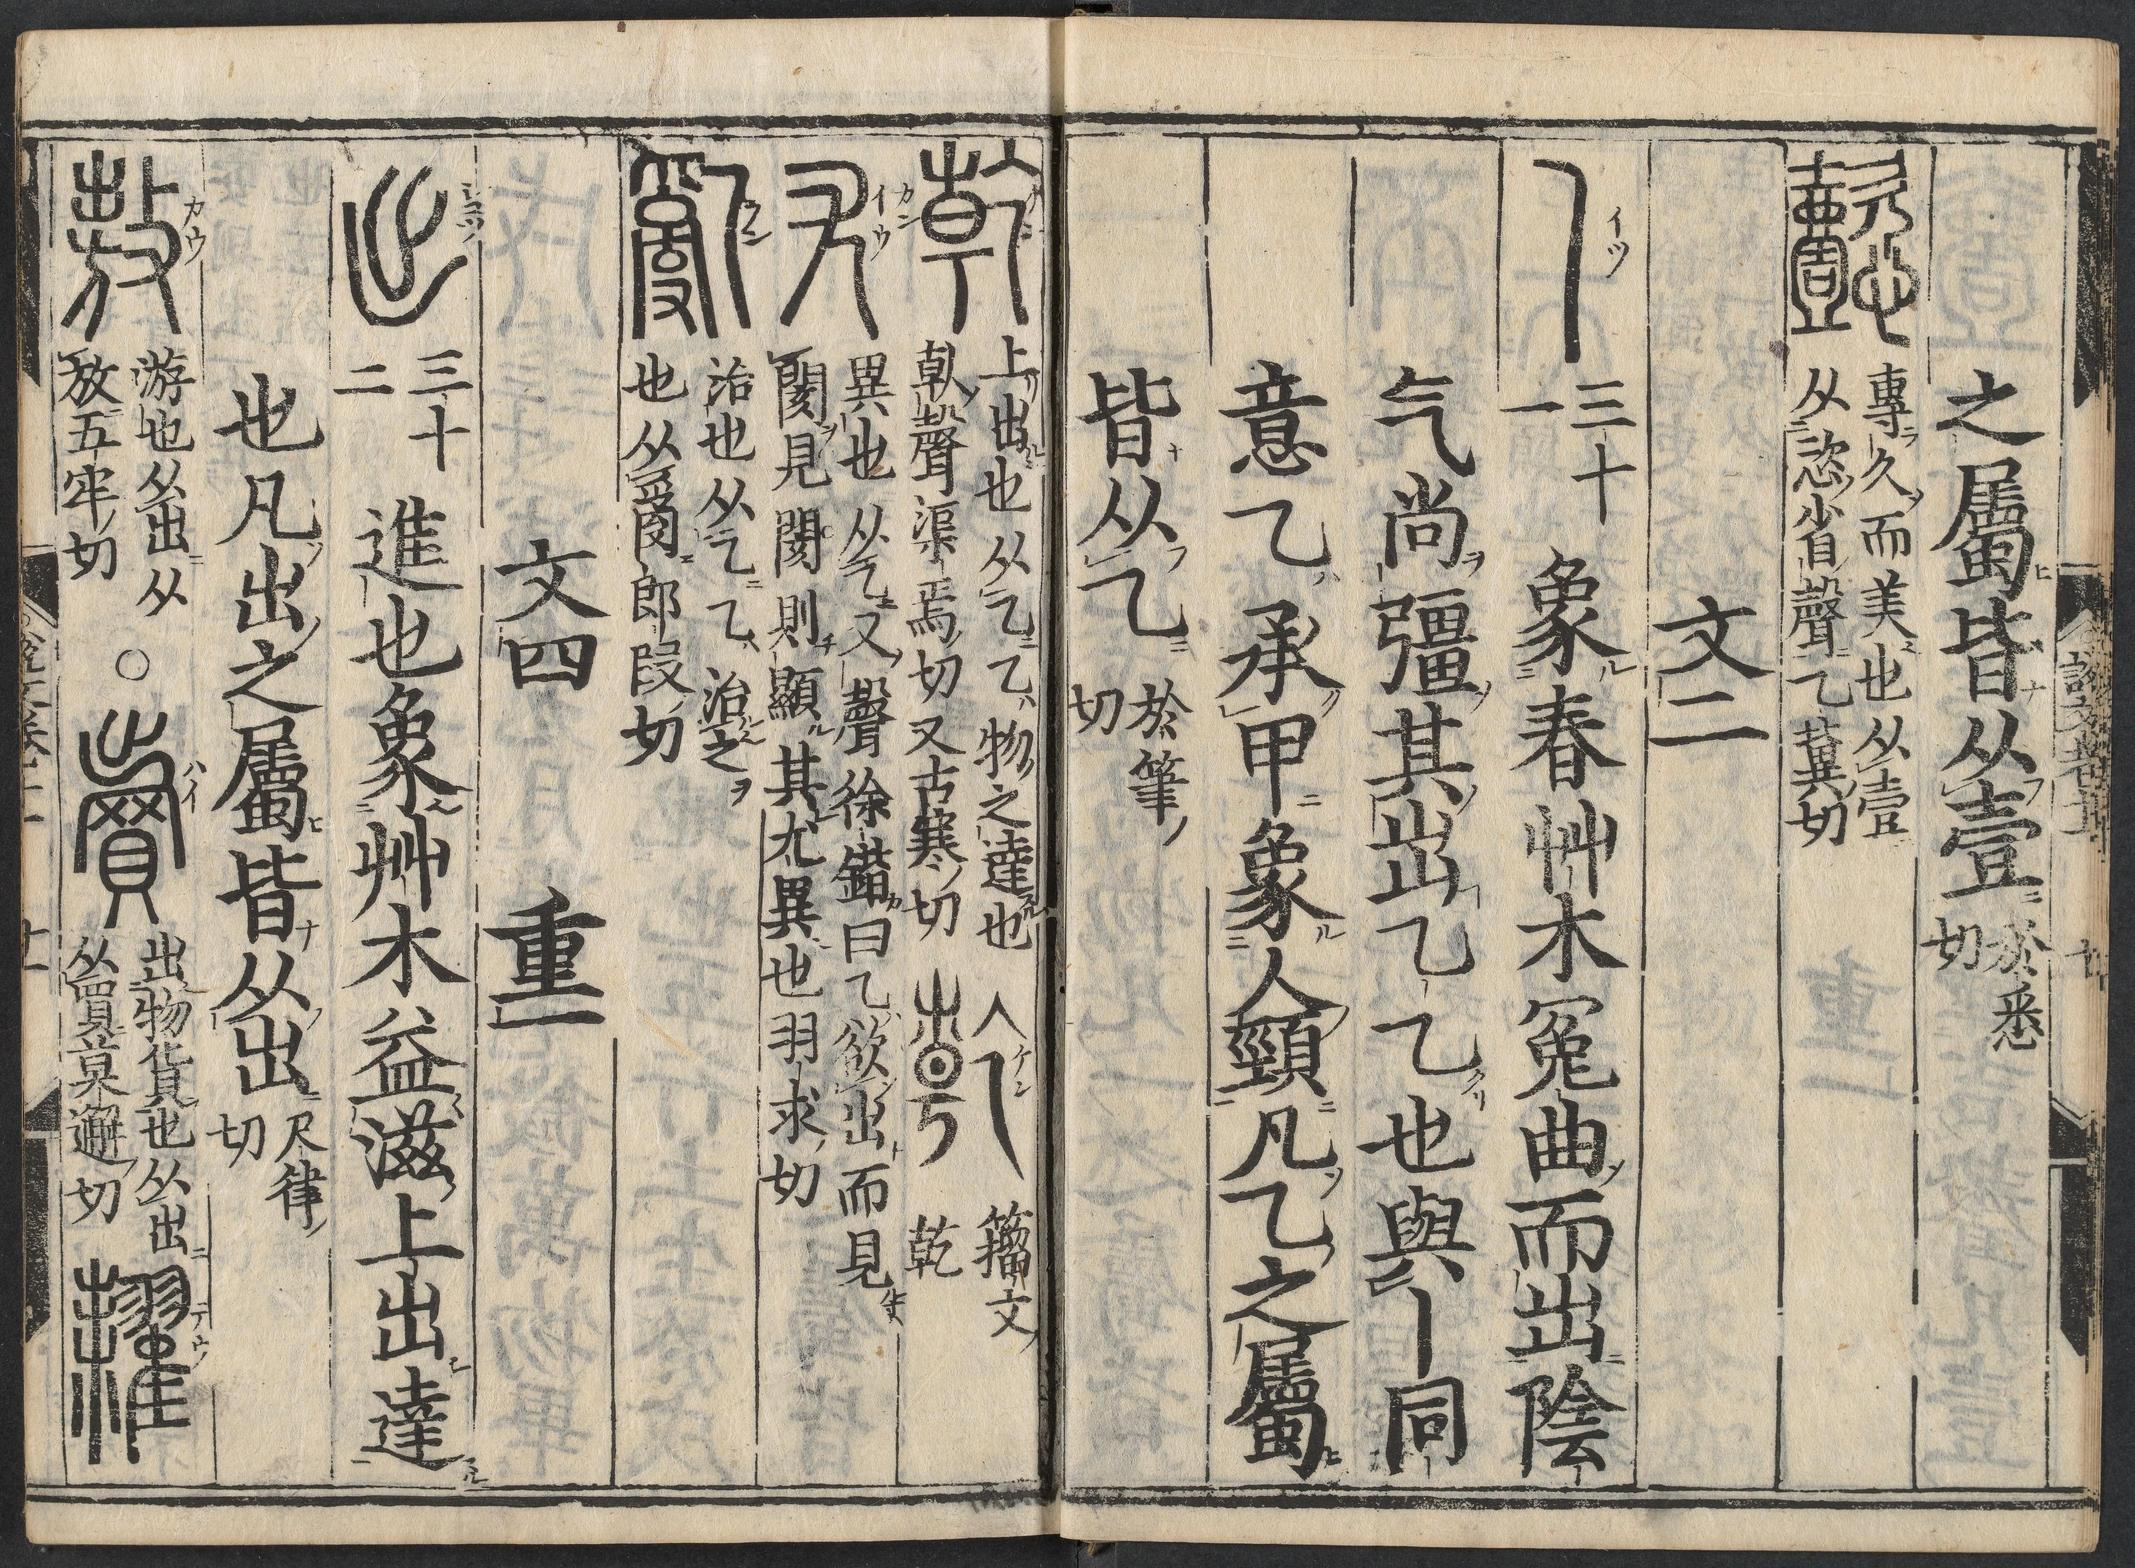 之屬皆从壹於悉切
懿 專久而美也从壹
从恣省聲乙冀切
文二
乙 三十一 象春艸木冤曲而出陰
气尚彊其出乙乙也與丨同
意乙承甲象人頸凡乙之屬
皆从乙於筆切
乾 上出也从乙乙物之達也
倝聲渠焉切又古寒切 籀文乾
尤 異也从乙又聲徐鍇曰乙欲出而見
閡見閡則顯其尤異也羽求切
亂 治也从乙乙治之
也从𤔔郎段切
文四 重一
出 三十二 進也象艸木益滋上出達
也凡出之屬皆从出尺律切
敖 游也从出从
放五牢切
○
賣 出物貨也从出
从買莫邂切
糶